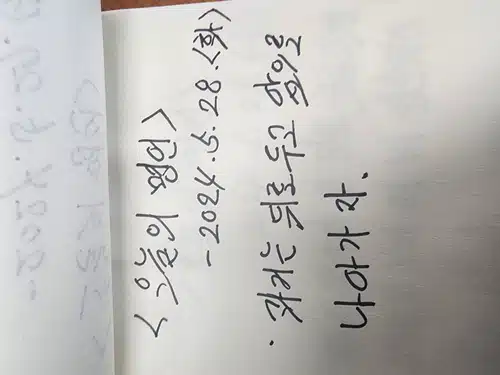 <오늘의 명언>
- 2024.5.28.<화>
· 과거는 뒤로 두고 앞으로
나아가자.